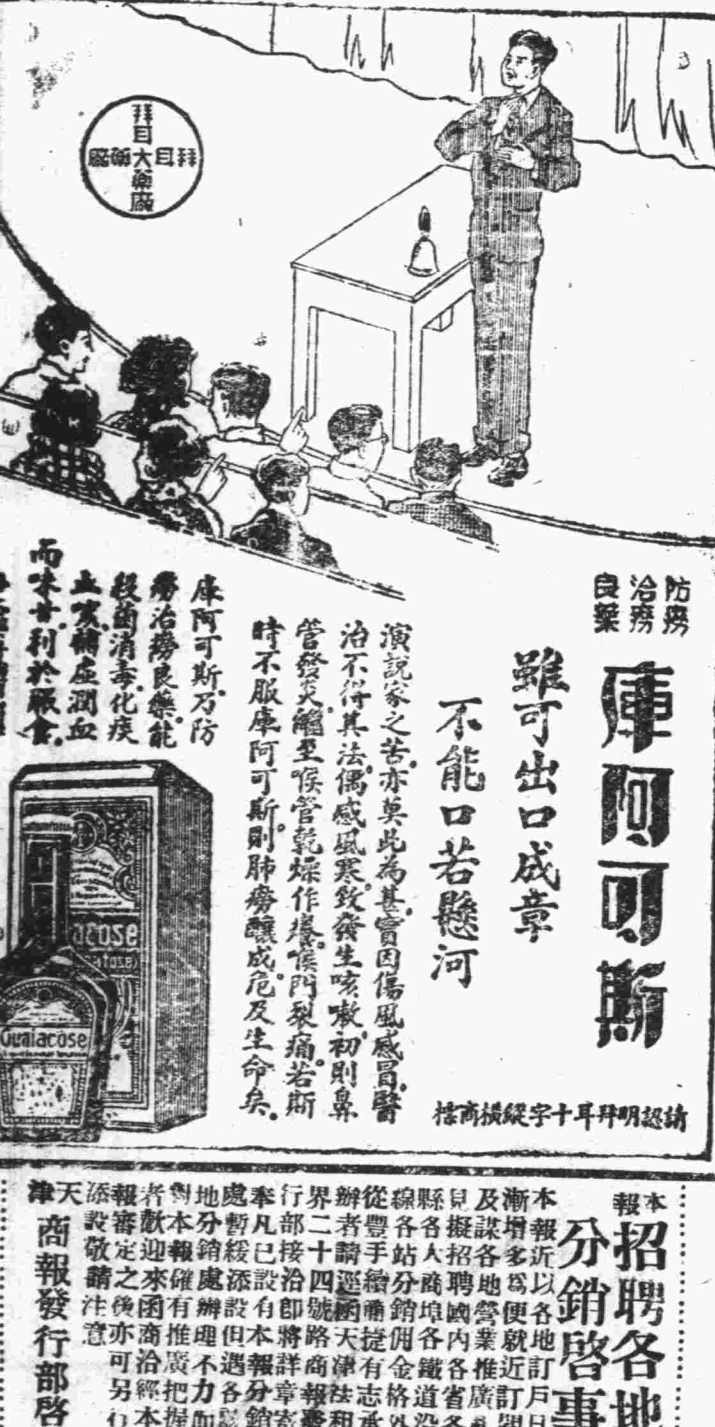 拜耳大藥廠
拜耳　藥廠
防癆
治癆
良藥
庫阿可斯
雖可出口成章
不能口若懸河
演說家之苦亦莫此為甚實因傷風感冒醫
治不得其法偶感風寒致發生咳嗽初則鼻
管發炎繼至喉管乾燥作癢喉門裂痛若斯
時不服庫阿可斯則肺癆釀成危及生命矣
庫阿可斯乃防
癆治癆良藥能
殺菌消毒化痰
止咳補虛潤血
而味甘利於服食
Guaiacose
請認明拜耳十字縱橫商標
本報
招聘各地
分銷啓事
本報近以各地訂戶日
漸增多為便就近訂閱
及謀各地營業推廣
見擬招聘國內各省各
縣各大商埠各鐵道沿
線各站分銷佣金格外
從豐手續簡捷有志承
辦者請逕函天津法租
界二十四號路商報
行部接洽卽將詳章寄
奉凡已設有本報分銷
處暫緩添設但遇各
地分銷處辦理不力而
對本報確有推廣把握
者歡迎來函商洽經本
報審定之後亦可另行
添設敬請注意
天津商報發行部啓